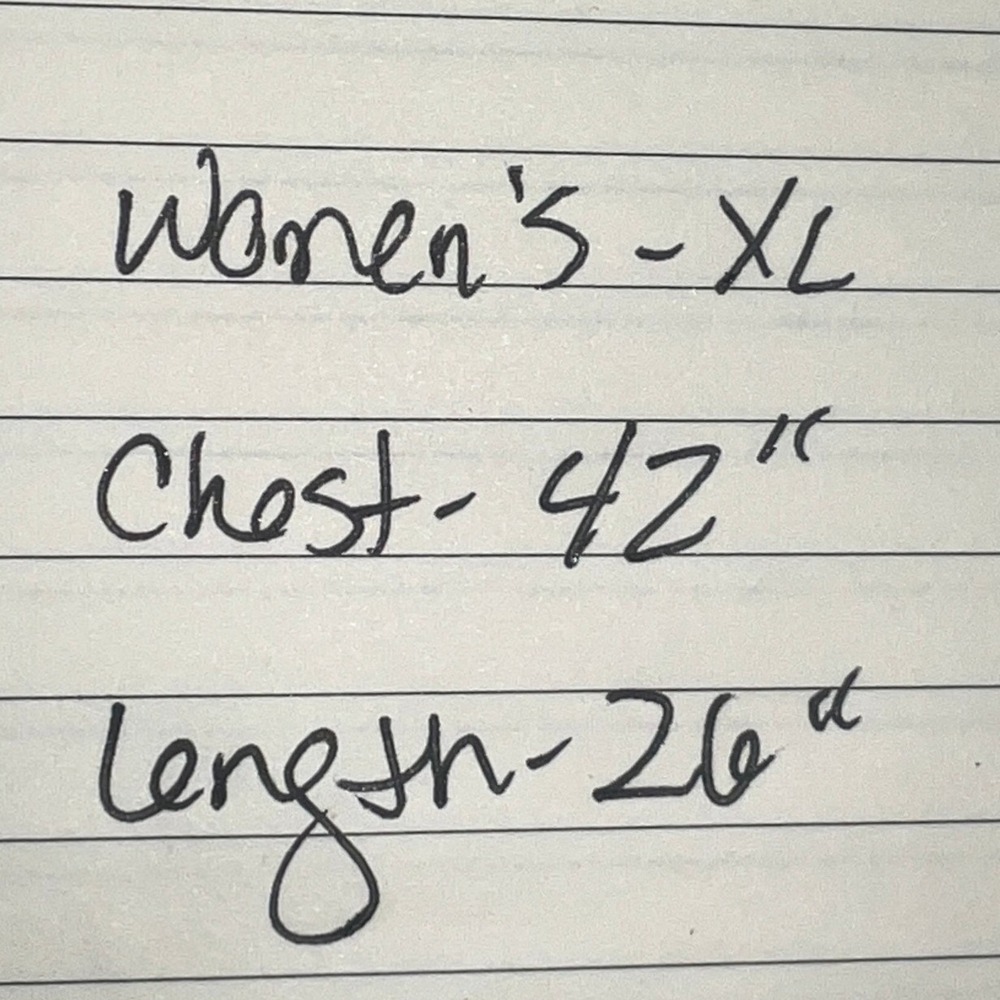 Women's - XL
Chest - 42"
Length - 26"